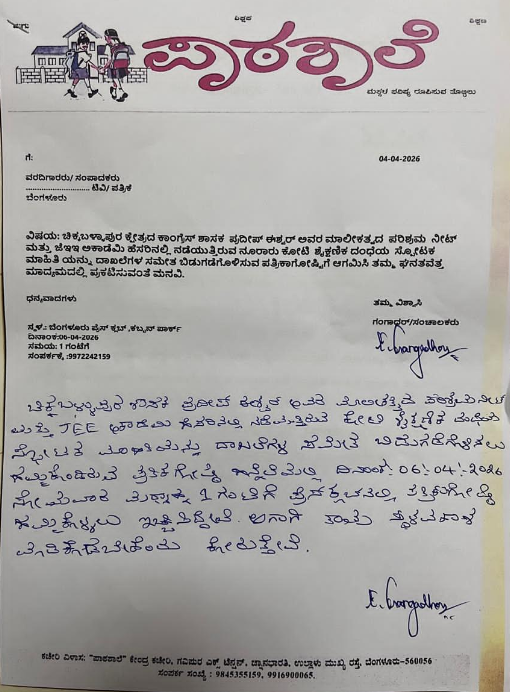 ಶಿಕ್ಷಣ
ಪಾಠಶಾಲೆ
ಮಕ್ಕಳ ಭವಿಷ್ಯ ರೂಪಿಸುವ ತೊಟ್ಟಿಲು
ಗೆ:
04-04-2026
ವರದಿಗಾರರು/ ಸಂಪಾದಕರು
............................. ಟಿವಿ/ ಪತ್ರಿಕೆ
ಬೆಂಗಳೂರು
ವಿಷಯ: ಚಿಕ್ಕಬಳ್ಳಾಪುರ ಕ್ಷೇತ್ರದ ಕಾಂಗ್ರೆಸ್ ಶಾಸಕ ಪ್ರದೀಪ್ ಈಶ್ವರ್ ಅವರ ಮಾಲೀಕತ್ವದ ಪರಿಶ್ರಮ ನೀಟ್
ಮತ್ತು ಜೆಇಇ ಅಕಾಡೆಮಿ ಹೆಸರಿನಲ್ಲಿ ನಡೆಯುತ್ತಿರುವ ನೂರಾರು ಕೋಟಿ ಶೈಕ್ಷಣಿಕ ದಂಧೆಯ ಸ್ಪೋಟಕ
ಮಾಹಿತಿ ಯನ್ನು ದಾಖಲೆಗಳ ಸಮೇತ ಬಿಡುಗಡೆಗೊಳಿಸುವ ಪತ್ರಿಕಾಗೋಷ್ಠಿಗೆ ಆಗಮಿಸಿ ತಮ್ಮ ಘನತೆವೆತ್ತ
ಮಾಧ್ಯಮದಲ್ಲಿ ಪ್ರಕಟಿಸುವಂತೆ ಮನವಿ.
ಧನ್ಯವಾದಗಳು
ತಮ್ಮ ವಿಶ್ವಾಸಿ
ಸ್ಥಳ: ಬೆಂಗಳೂರು ಪ್ರೆಸ್ ಕ್ಲಬ್ ,ಕಬ್ಬನ್ ಪಾರ್ಕ್
ಗಂಗಾಧರ್/ಸಂಚಾಲಕರು
ದಿನಾಂಕ:06-04-2026
ಸಮಯ: 1 ಗಂಟೆಗೆ
ಸಂಪರ್ಕಕ್ಕೆ :9972242159
ಚಿಕ್ಕಬಳ್ಳಾಪುರ ಶಾಸಕ ಪ್ರದೀಪ್ ಈಶ್ವರ ಅವರ ಮಾಲೀಕತ್ವದ ಪರಿಶ್ರಮ ನೀಟ
ಮತ್ತು JEE ಅಕಾಡೆಮಿ ಹೆಸರಿನಲ್ಲಿ ನಡೆಯುತ್ತಿರುವ ಕೋಟಿ ಶೈಕ್ಷಣಿಕ ದಂಧೆಯ
ಸ್ಪೋಟಕ ಮಾಹಿತಿಯನ್ನು ದಾಖಲೆಗಳ ಸಮೇತ ಬಿಡುಗಡೆಗೊಳಿಸಲು
ಹಮ್ಮಿಕೊಂಡಿರುವ ಪ್ರತಿಕಗೋಷ್ಠಿ ದಿನಾಂಕ: 06: 04: 2026
ಸೋಮವಾರ ಮಧ್ಯಾಹ್ನ 1 ಗಂಟೆಗೆ ಪ್ರೆಸ್‌ಕ್ಲಬ್‌ನಲ್ಲಿ ಪತ್ರಿಕಾಗೋಷ್ಠಿ
ಹಮ್ಮಿಕೊಳ್ಳಲು ಇಚ್ಛಿಸಿದ್ದೇವೆ. ಆಗಾಗಿ ತಾವು ಸ್ಥಳಾವಕಾಶ
ಮಾಡಿಕೊಡಬೇಕೆಂದು ಕೋರುತ್ತೇವೆ.
ಕಚೇರಿ ವಿಳಾಸ: "ಪಾಠಶಾಲೆ" ಕೇಂದ್ರ ಕಚೇರಿ, ಗವಿಮಠ ಎಕ್ಸ್ ಟೆನ್ಷನ್, ಜ್ಞಾನಭಾರತಿ, ಉಲ್ಲಾಳು ಮುಖ್ಯ ರಸ್ತೆ, ಬೆಂಗಳೂರು-560056
ಸಂಪರ್ಕ ಸಂಖ್ಯೆ : 9845355159, 9916900065.